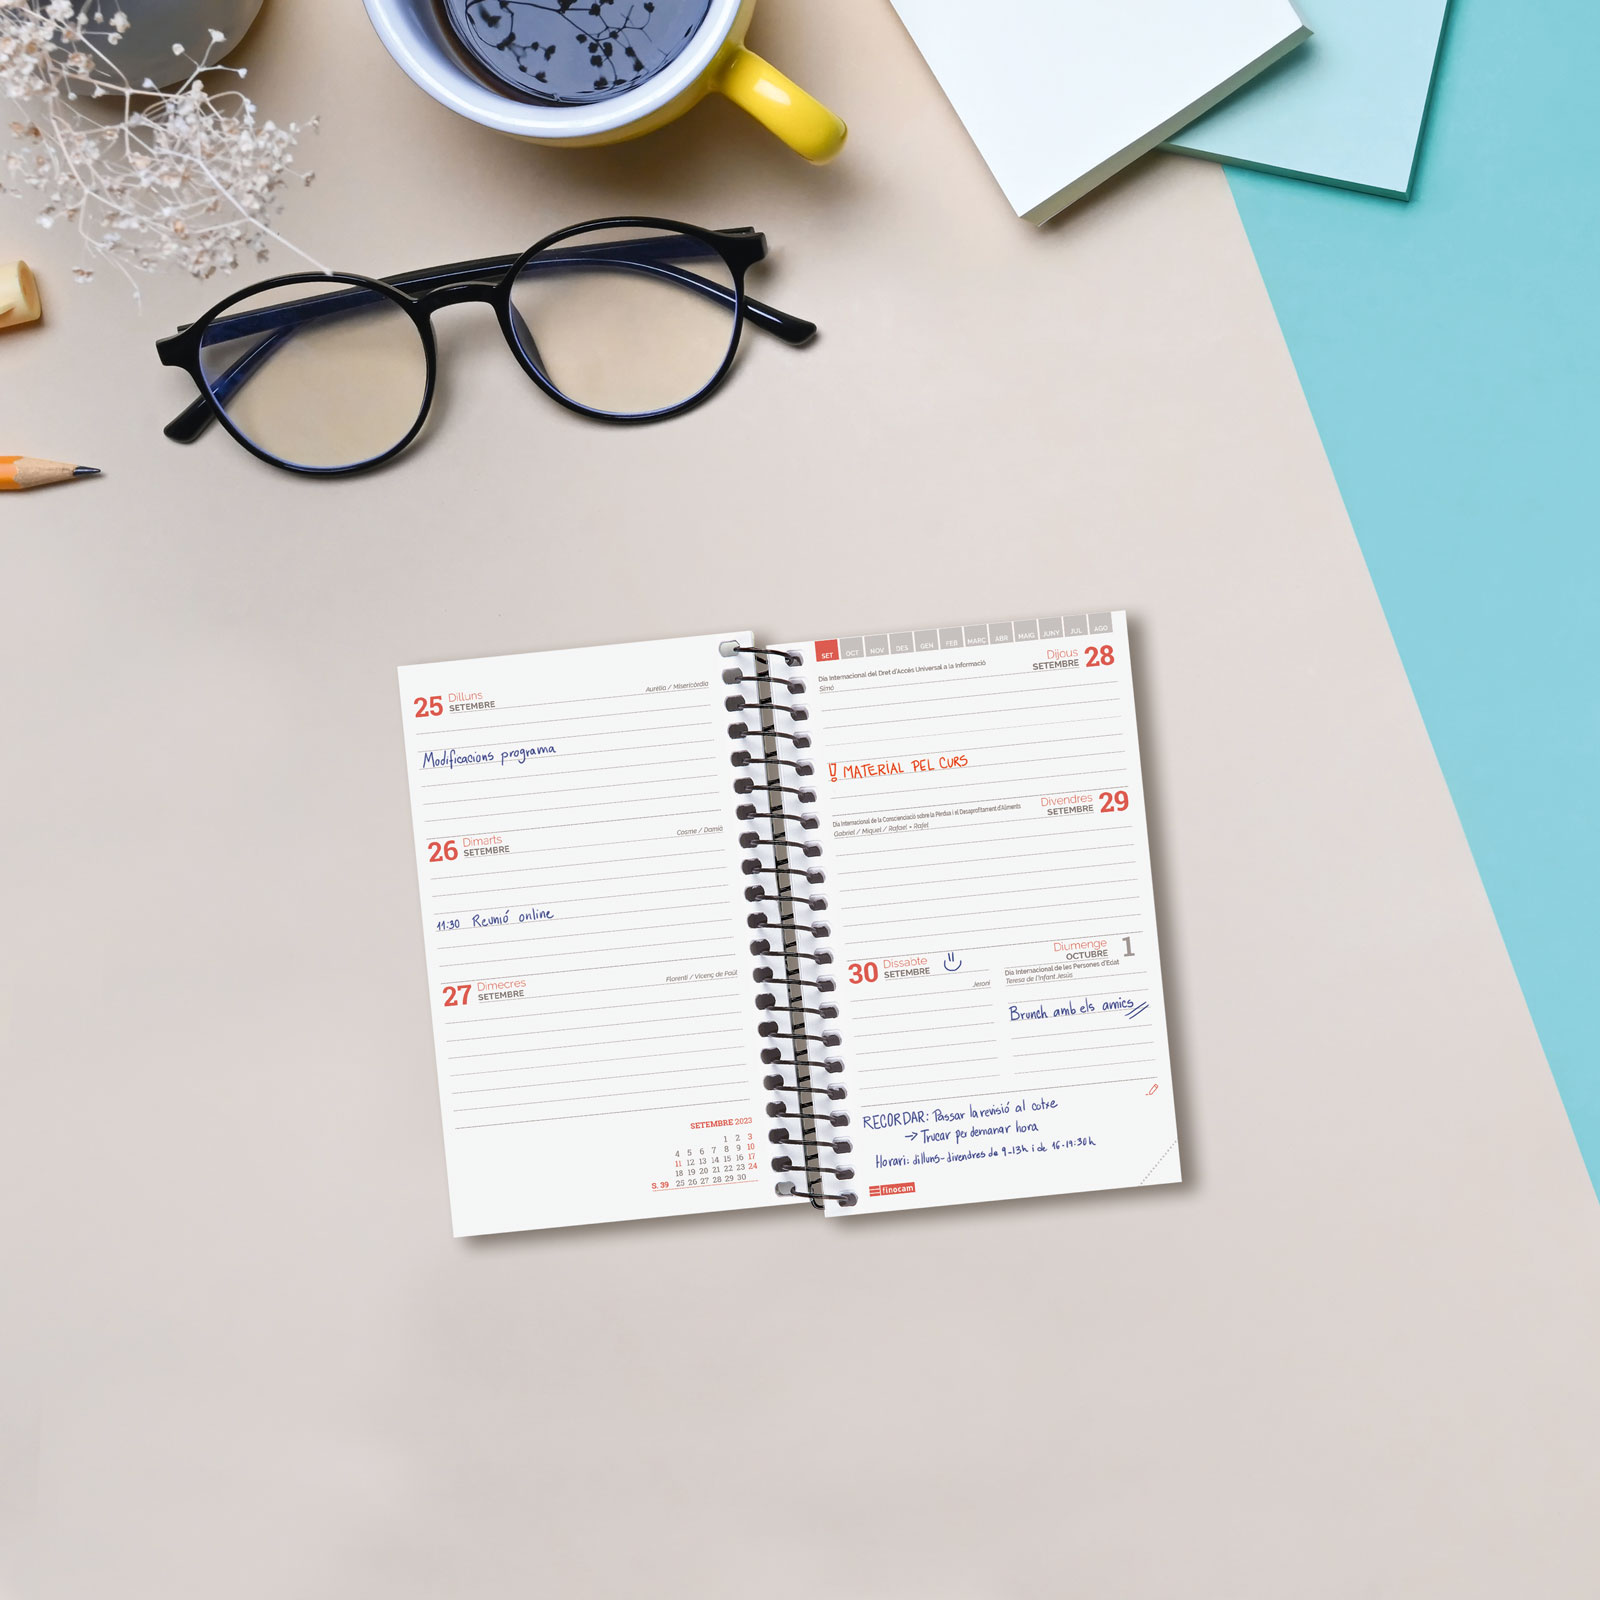 25 Dilluns
SETEMBRE
Aurèlia / Misericòrdia
Modificacions programa
26 Dimarts
SETEMBRE
Cosme / Damià
11:30 Reunió online
27 Dimecres
SETEMBRE
Florentí / Vicenç de Paül
SETEMBRE 2023
1 2 3
4 5 6 7 8 9 10
11 12 13 14 15 16 17
18 19 20 21 22 23 24
S. 39 25 26 27 28 29 30
SET OCT NOV DES GEN FEB MARÇ ABR MAIG JUNY JUL AGO
Dia Internacional del Dret d'Accés Universal a la Informació
Simó
Dijous 28
SETEMBRE
! MATERIAL PEL CURS
Dia Internacional de la Conscienciació sobre la Pèrdua i el Desaprofitament d'Aliments
Gabriel / Miquel / Rafael - Rafel
Divendres 29
SETEMBRE
30 Dissabte
SETEMBRE
Jeroni
Diumenge 1
OCTUBRE
Dia Internacional de les Persones d'Edat
Teresa de l'Infant Jesús
Brunch amb els amics
RECORDAR: Passar la revisió al cotxe
→ Trucar per demanar hora
Horari: dilluns-divendres de 9-13h i de 16-19:30h
finocam